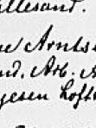 llesand.
ne Arntse
nd. Arb. A
gesen Lofts